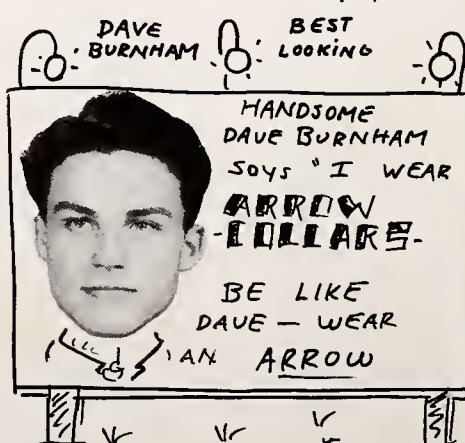 DAVE BURNHAM
BEST LOOKING
HANDSOME
DAVE BURNHAM
SAYS "I WEAR
ARROW
-COLLARS-
BE LIKE
DAVE — WEAR
AN ARROW